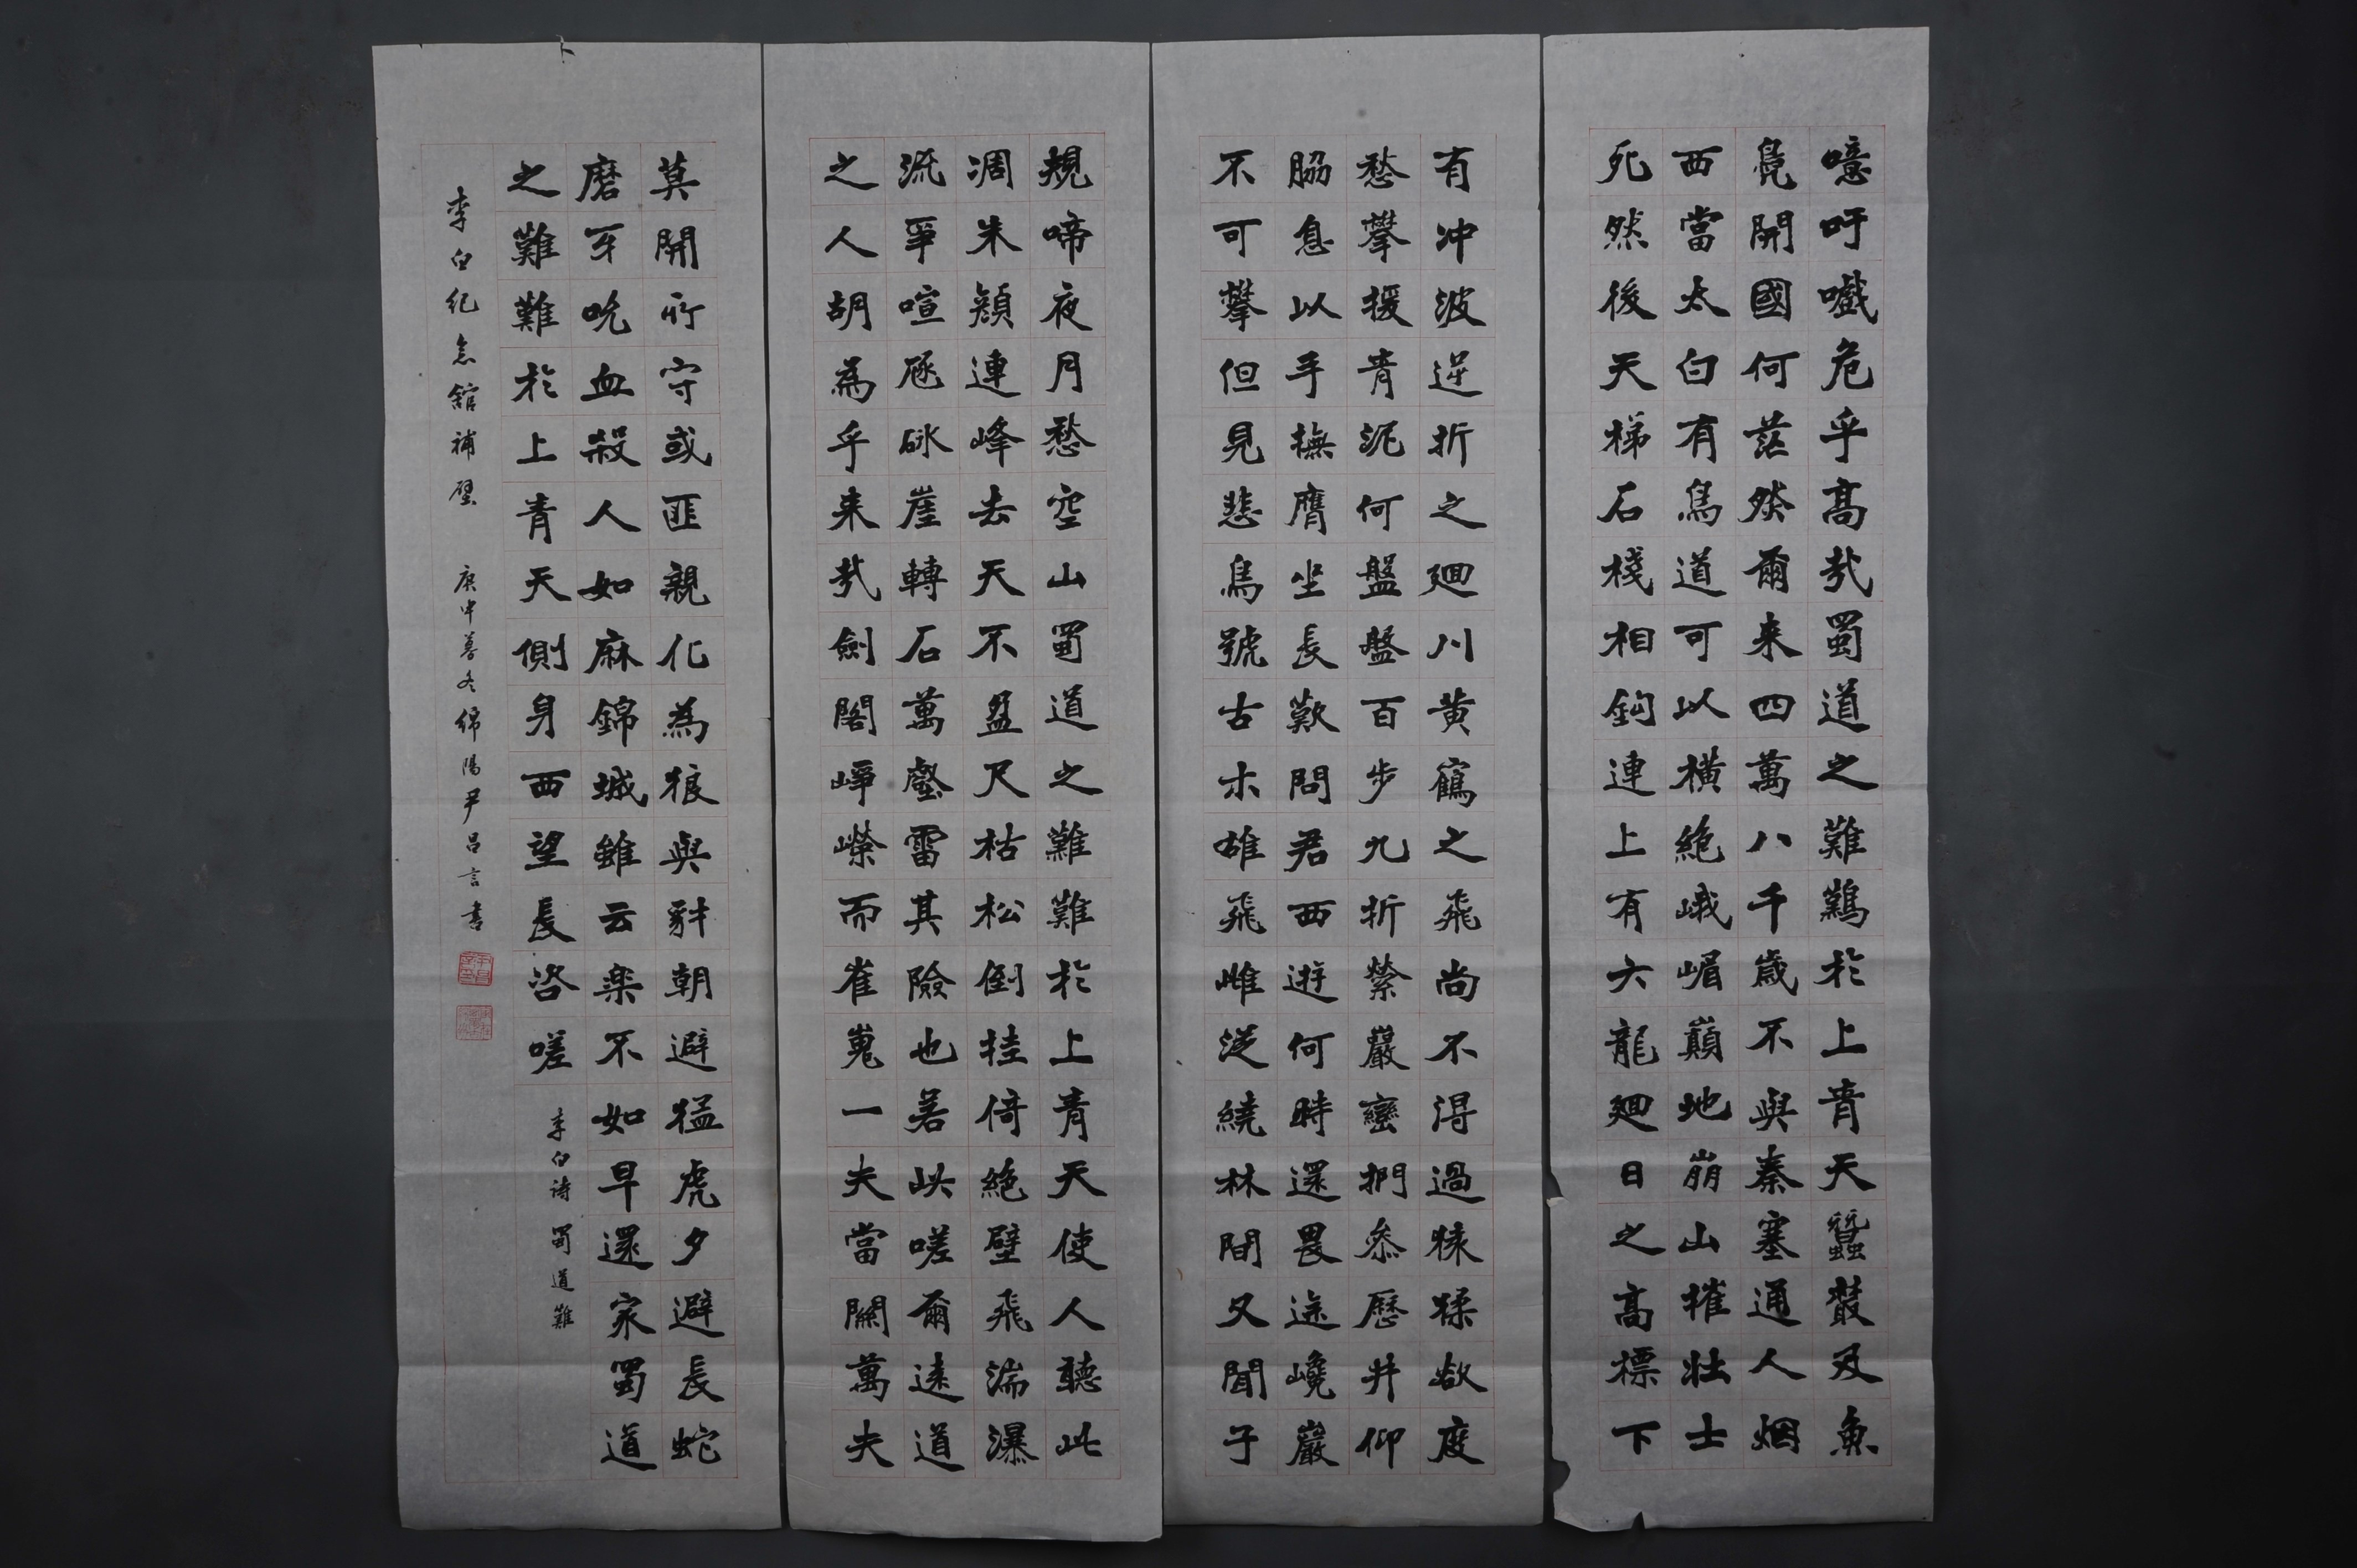 噫吁嚱危乎高哉蜀道之難難於上青天蠶叢及魚
鳧開國何茫然爾来四萬八千歲不與秦塞通人烟
西當太白有鳥道可以横絶峨嵋巔地崩山摧壯士
死然後天梯石棧相鈎連上有六龍廻日之高標下
有冲波逆折之廻川黄鶴之飛尚不得過猱猱欲度
愁攀援青泥何盤盤百步九折縈巖巒捫叅歷井仰
脇息以手撫膺坐長歎問君西遊何時還畏途巉巖
不可攀但見悲鳥號古木雄飛雌從繞林間又聞子
規啼夜月愁空山蜀道之難難於上青天使人聽此
凋朱顔連峰去天不盈尺枯松倒挂倚絶壁飛湍瀑
流爭喧豗砯崖轉石萬壑雷其險也若此嗟爾遠道
之人胡為乎来哉劍閣崢嶸而崔嵬一夫當關萬夫
莫開所守或匪親化為狼與豺朝避猛虎夕避長蛇
磨牙吮血殺人如麻錦城雖云楽不如早還家蜀道
之難難於上青天側身西望長咨嗟 李白诗 蜀道難
李白纪念舘補壁 庚申暮冬綿陽尹吕言書